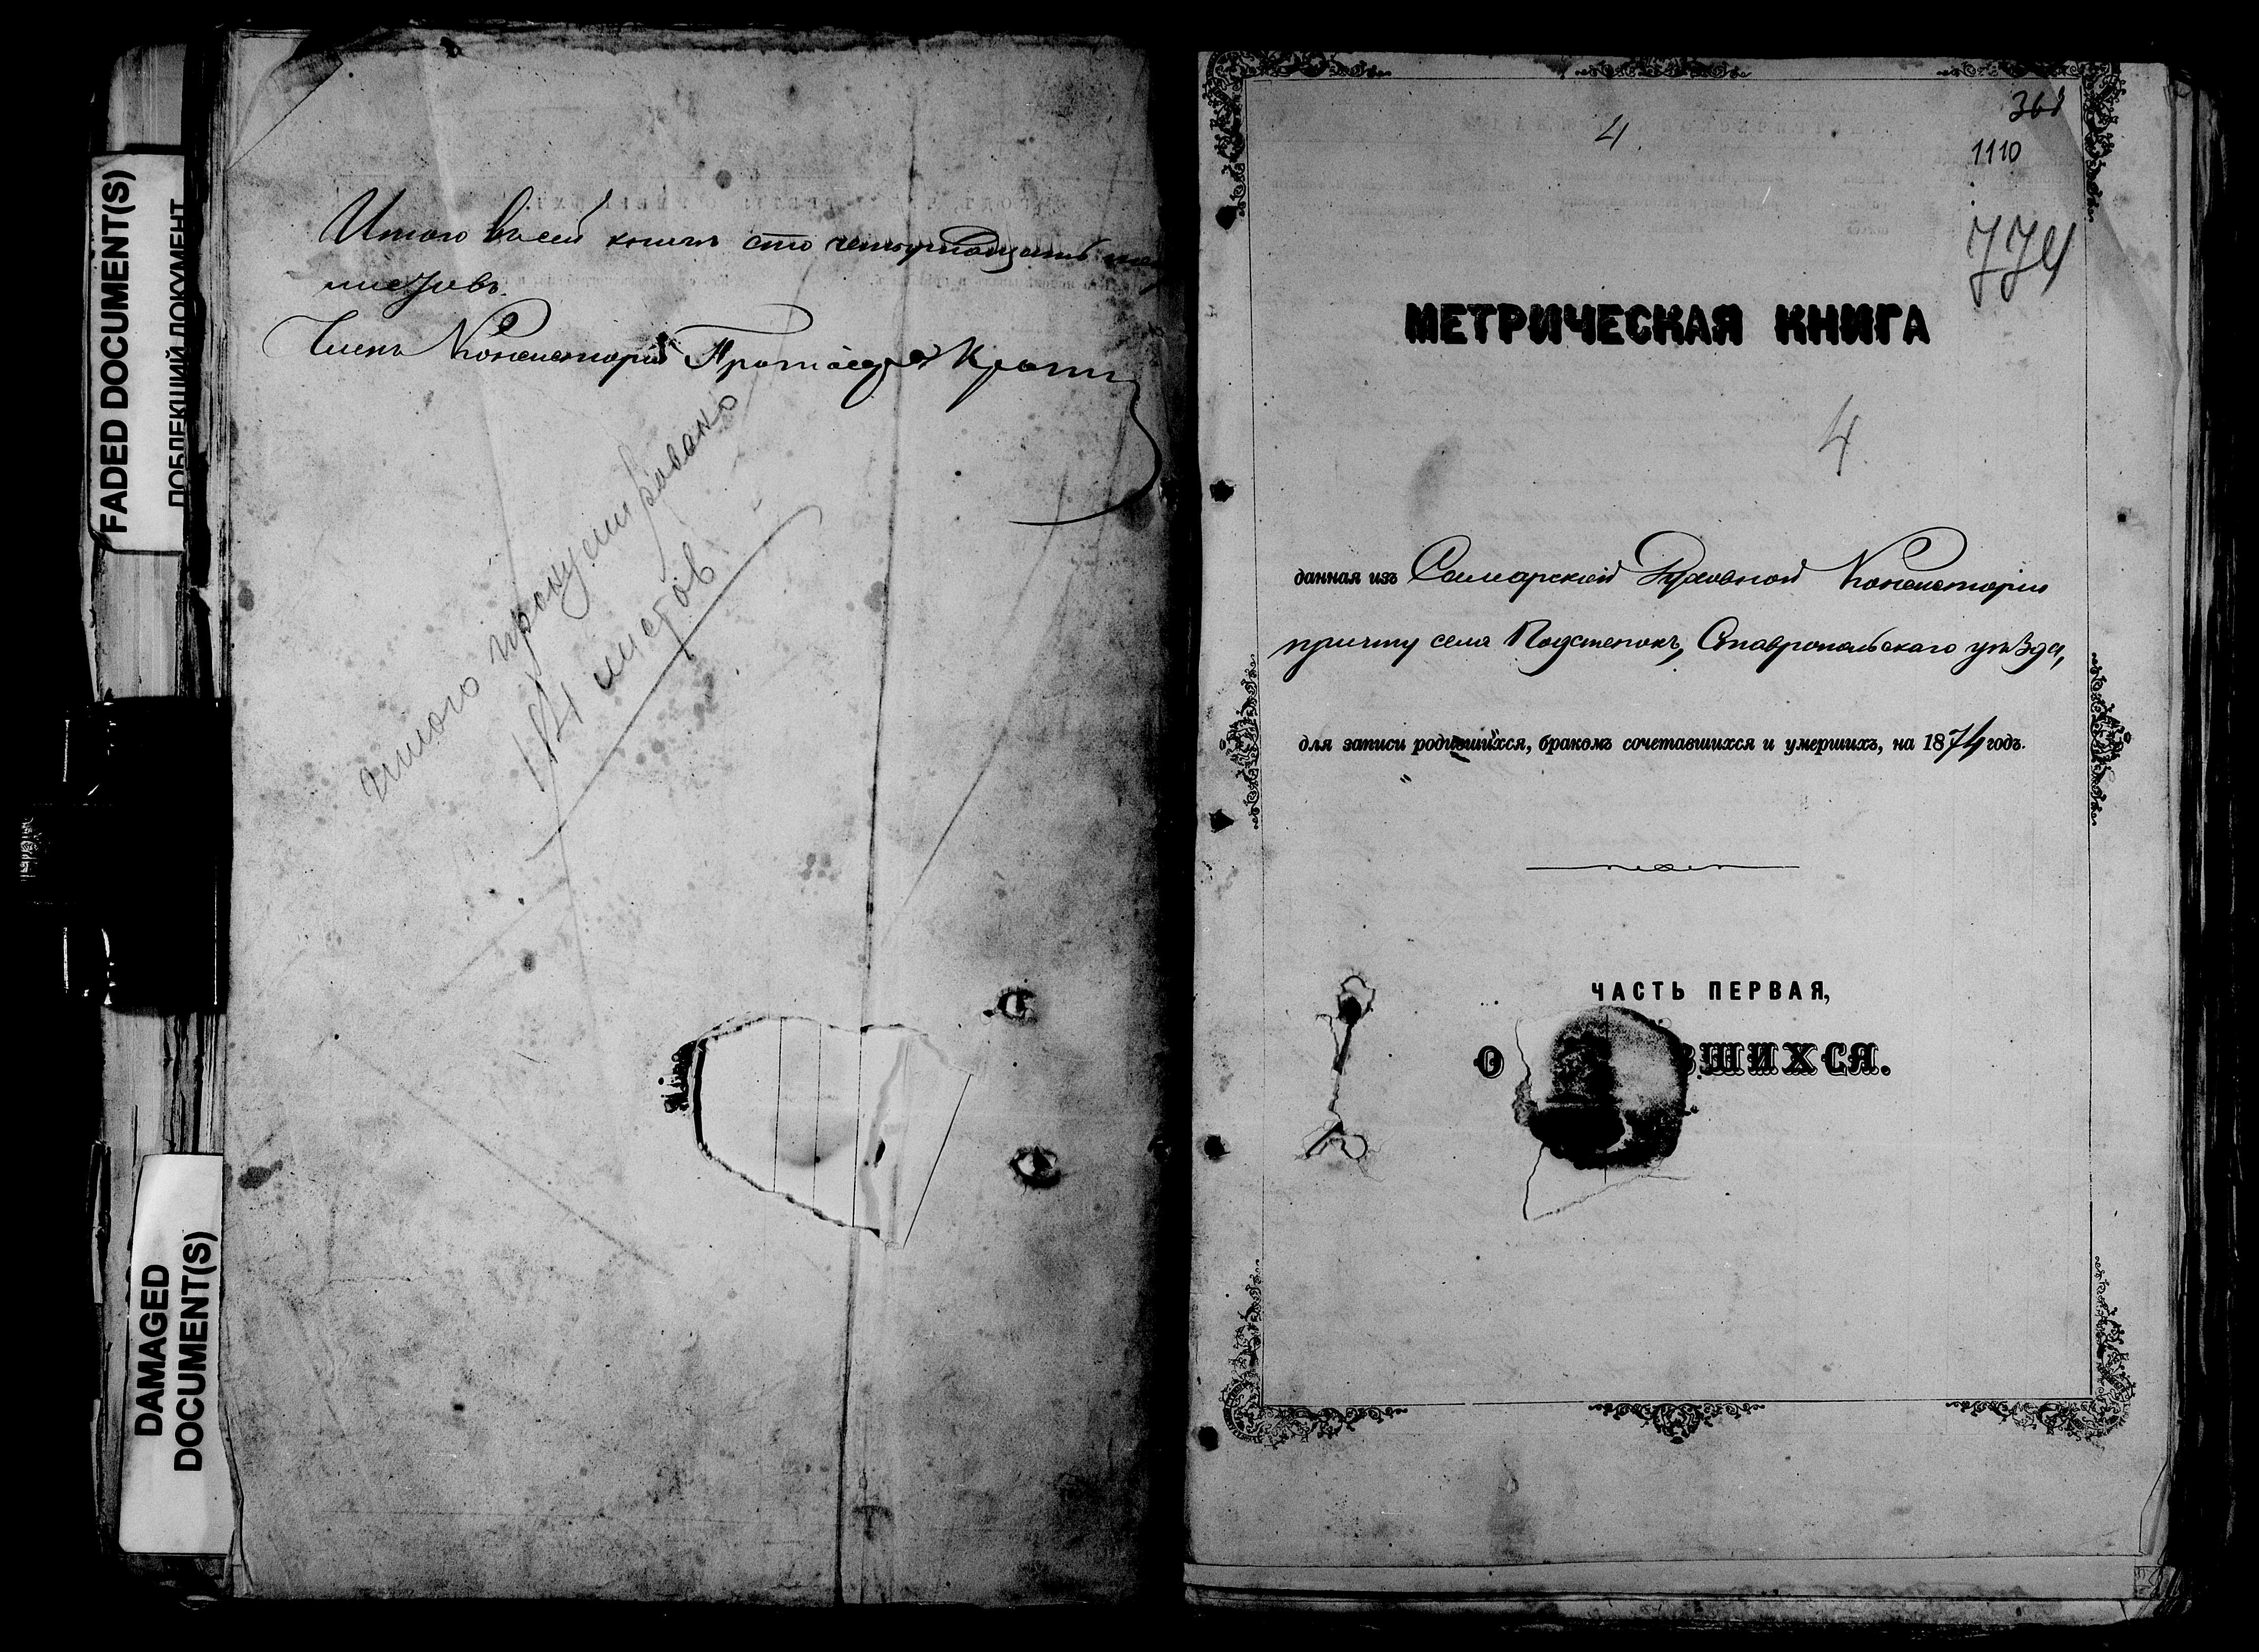 FADED DOCUMENT(S)
ПОБЛЕКШИЙ ДОКУМЕНТ
DAMAGED
DOCUMENT(S)
Итого в сей книгѣ сто четырнадцать
листовъ.
Членъ Консисторіи Протоіерей
итого пронумеровано
листов
4
368
1110
774
МЕТРИЧЕСКАЯ КНИГА
4
данная изъ Самарской Духовной Консисторіи
причту села Подстепокъ, Ставропольскаго уѣзда,
для записи родившихся, бракомъ сочетавшихся и умершихъ, на 1874 годъ.
ЧАСТЬ ПЕРВАЯ,
О ВШИХСЯ.